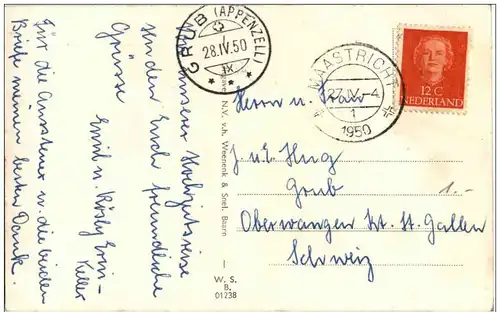 Auf unserer Hochzeitsreise
senden Euch freundliche
Grüsse
Emil u. Rösly
Keller
Für die Aussteuer u. die beiden
Briefe meinen besten Dank.
GRUB (APPENZELL)
28.IV.50
IX
MAASTRICHT
27.IV.-4
1
1950
12 C
NEDERLAND
N.V. v.h. Weenenk & Snel, Baarn
W. S.
B.
01238
Herrn u. Frau
J. u. E. Hug
Grub
1.-
Oberwangen Kt. St. Gallen
Schweiz